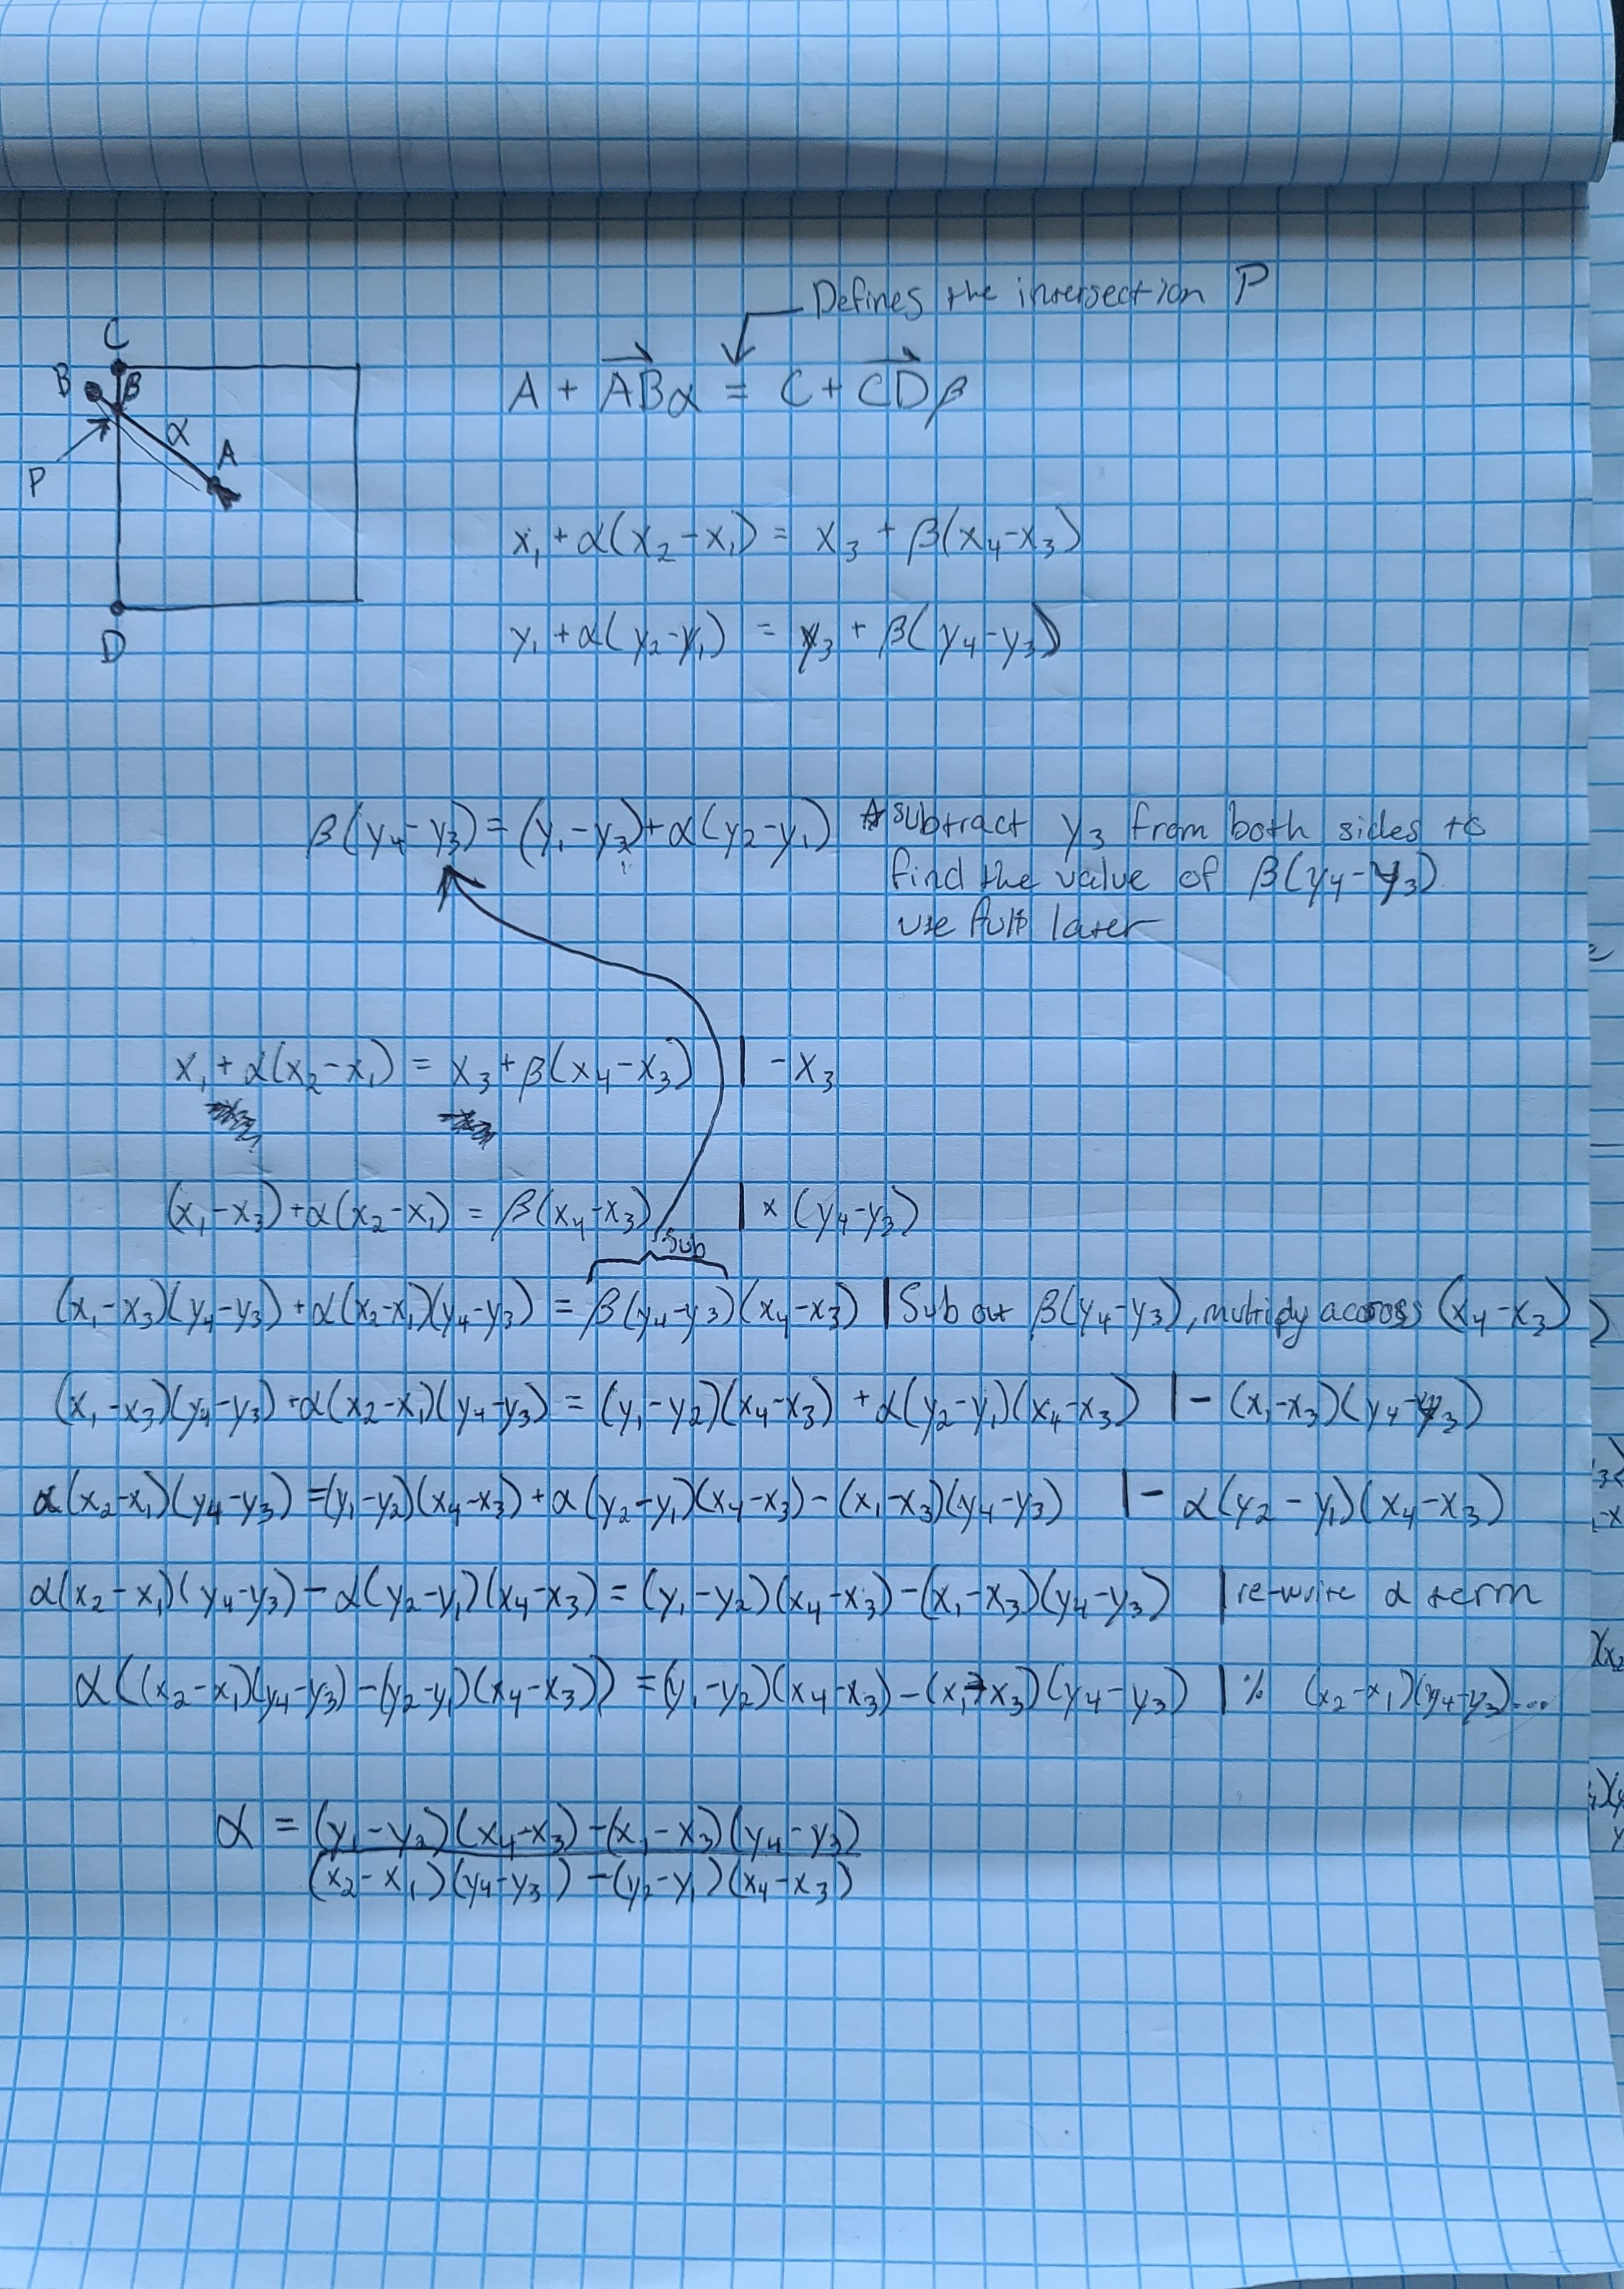 Defines the intersection P
C
B β
A + ABα = C + CDβ
α
A
P
x₁ + α(x₂ - x₁) = x₃ + β(x₄ - x₃)
y₁ + α(y₂ - y₁) = y₃ + β(y₄ - y₃)
D
β(y₄ - y₃) = (y₁ - y₃) + α(y₂ - y₁) * subtract y₃ from both sides to
find the value of β(y₄ - y₃)
use full later
x₁ + α(x₂ - x₁) = x₃ + β(x₄ - x₃) | - x₃
(x₁ - x₃) + α(x₂ - x₁) = β(x₄ - x₃) | × (y₄ - y₃)
Sub
(x₁ - x₃)(y₄ - y₃) + α(x₂ - x₁)(y₄ - y₃) = β(y₄ - y₃)(x₄ - x₃) | Sub out β(y₄ - y₃), multiply across (x₄ - x₃)
(x₁ - x₃)(y₄ - y₃) + α(x₂ - x₁)(y₄ - y₃) = (y₁ - y₂)(x₄ - x₃) + α(y₂ - y₁)(x₄ - x₃) | - (x₁ - x₃)(y₄ - y₃)
α(x₂ - x₁)(y₄ - y₃) = (y₁ - y₂)(x₄ - x₃) + α(y₂ - y₁)(x₄ - x₃) - (x₁ - x₃)(y₄ - y₃) | - α(y₂ - y₁)(x₄ - x₃)
α(x₂ - x₁)(y₄ - y₃) - α(y₂ - y₁)(x₄ - x₃) = (y₁ - y₂)(x₄ - x₃) - (x₁ - x₃)(y₄ - y₃) | re-write α term
α((x₂ - x₁)(y₄ - y₃) - (y₂ - y₁)(x₄ - x₃)) = (y₁ - y₂)(x₄ - x₃) - (x₁ - x₃)(y₄ - y₃) | % (x₂ - x₁)(y₄ - y₃)...
α = (y₁ - y₂)(x₄ - x₃) - (x₁ - x₃)(y₄ - y₃)
(x₂ - x₁)(y₄ - y₃) - (y₂ - y₁)(x₄ - x₃)